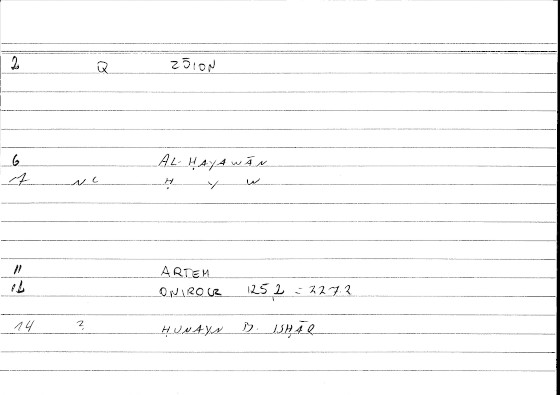 2 Q ZŌION
6 AL-ḤAYAWĀN
7 NC Ḥ Y W
11 ARTEM
12 ONIROCR 125,2 = 227 2
14 ? ḤUNAYN B. ISḤĀQ